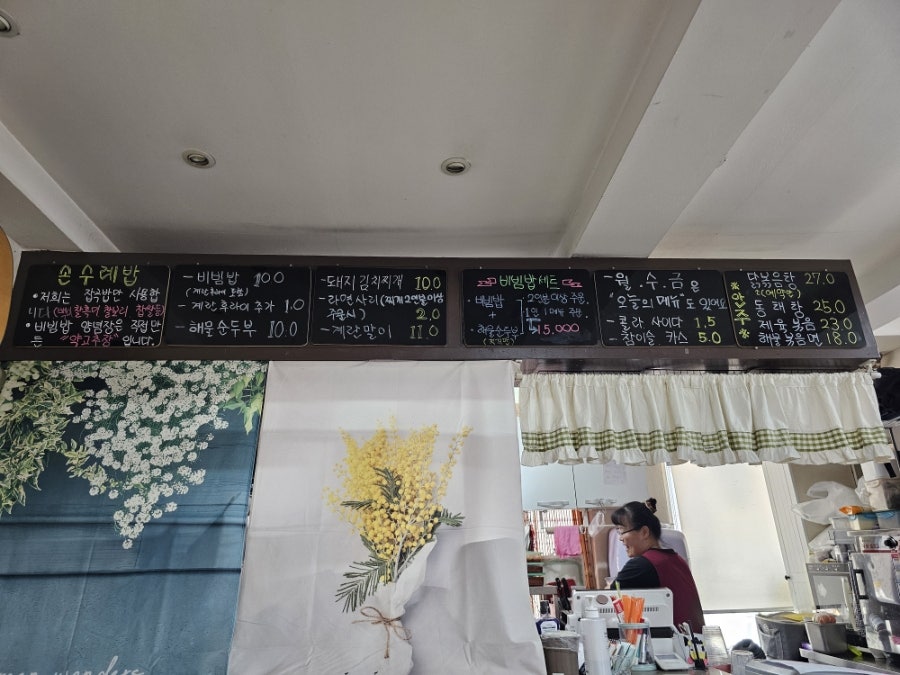 손수레밥
• 저희는 잡곡밥만 사용합
니다 (현미 찰흑미 찰보리 찹쌀등)
• 비빔밥 양념장은 직접 만
든 "약고추장" 입니다.
- 비빔밥 10.0
- 계란후라이 추가 1.0
- 해물순두부 10.0
- 돼지김치찌개 10.0
- 라면사리 (찌개 2인분이상
주문시) 2.0
- 계란말이 11.0
비빔밥세트
비빔밥
+
해물순두부
2인분이상 주문
15.000
- 월.수.금은
"오늘의 메뉴"도 있어요
- 콜라 사이다 1.5
- 참이슬 카스 5.0
※안주※
닭볶음탕 27.0
(예약만)
동태탕 25.0
제육볶음 23.0
해물볶음면 18.0